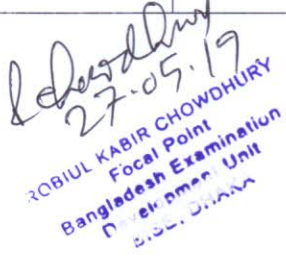 Rchowdhury
27.05.19
ROBIUL KABIR CHOWDHURY
Focal Point
Bangladesh Examination
Development Unit
BISE, DHAKA